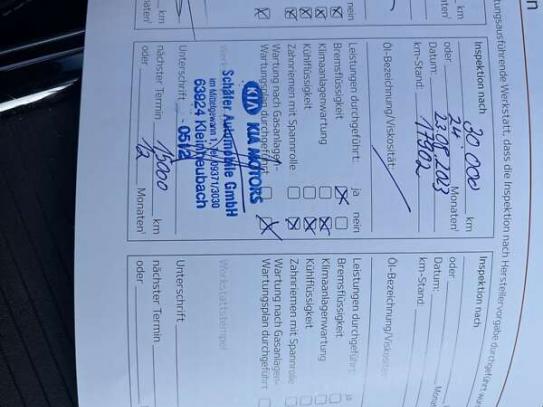 tungsausführende Werkstatt, dass die Inspektion nach Herstellervorgabe durchgeführt wur
km
Monaten¹
nein
Inspektion nach
30 000 km
oder 24 Monaten¹
Datum: 23.08.2023
km-Stand: 17902
Öl-Bezeichnung/Viskosität:
Leistungen durchgeführt: ja nein
Bremsflüssigkeit
Klimaanlagenwartung
Kühlflüssigkeit
Zahnriemen mit Spannrolle
Wartung nach Gasanlagen-
Wartungsplan durchgeführt
KIA KIA MOTORS
Schäfer Automobile GmbH
im Mittelgewann 1, Tel. 09371/3030
63924 Kleinheubach
05V2
Unterschrift
nächster Termin 15000 km
oder 12 Monaten¹
Inspektion nach
oder
Datum:
km-Stand:
Öl-Bezeichnung/Viskosität:
Leistungen durchgeführt: ja
Bremsflüssigkeit
Klimaanlagenwartung
Kühlflüssigkeit
Zahnriemen mit Spannrolle
Wartung nach Gasanlagen-
Wartungsplan durchgeführt
Werkstattstempel
Unterschrift
nächster Termin
oder